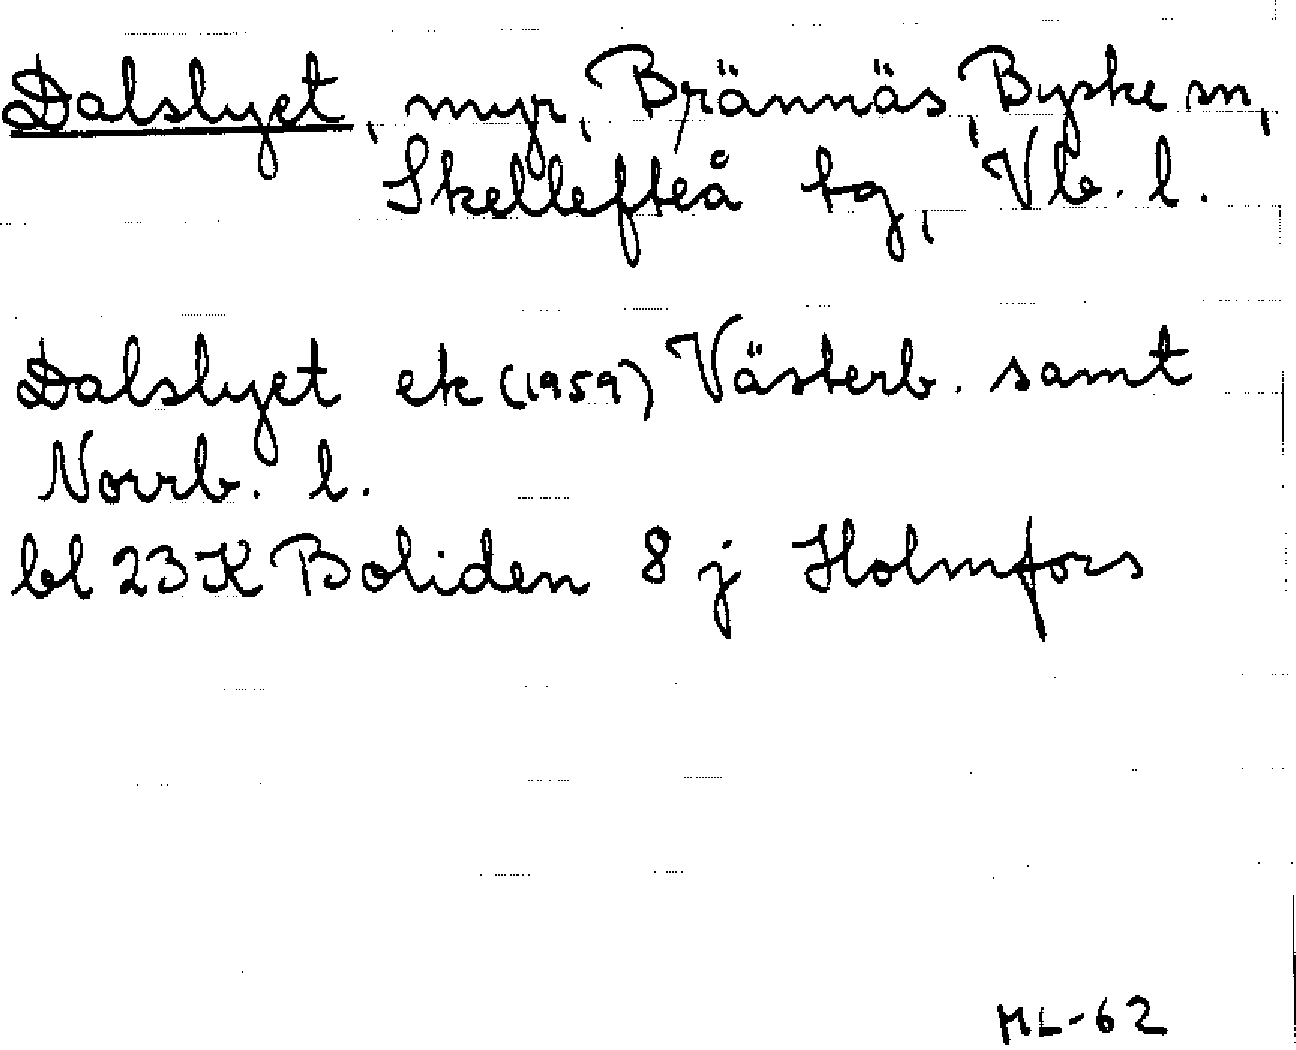 Dalslyet, myr, Brännäs, Byske sn,
Skellefteå tg, Vb. l.
Dalslyet ek (1959) Västerb. samt
Norrb. l.
bl 23 K Boliden 8 j Holmfors
ML-62